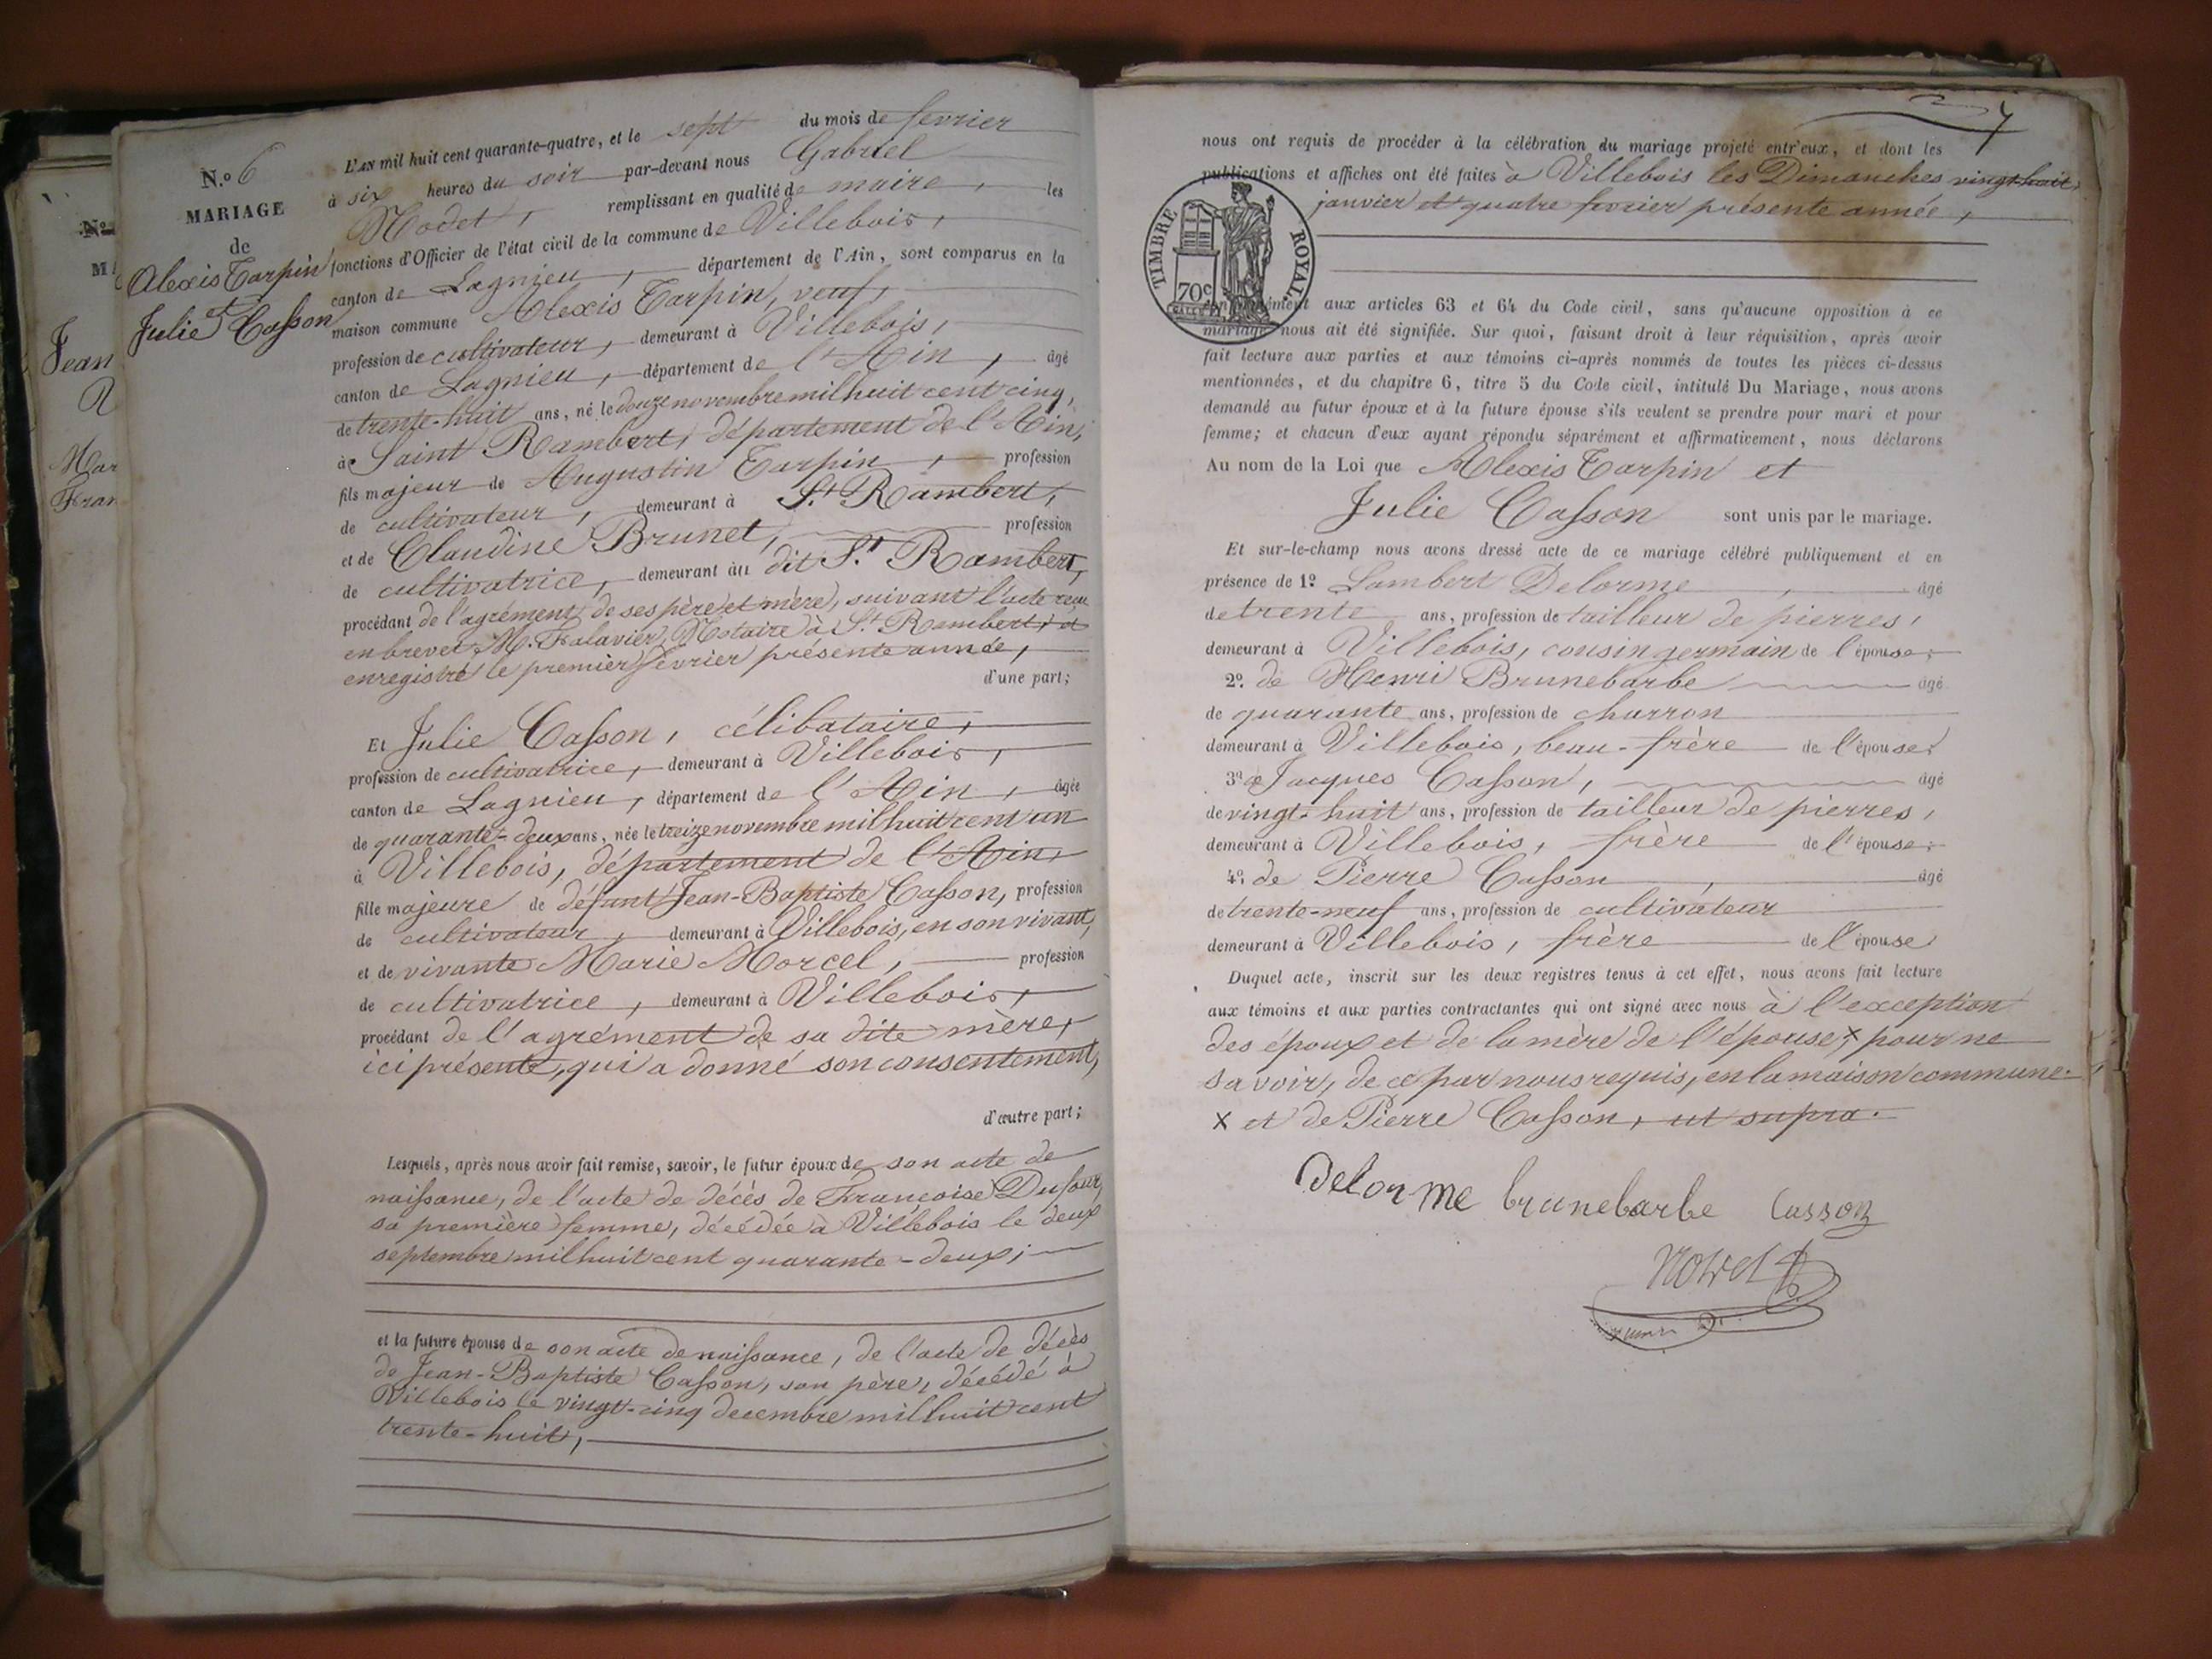 N.o 6
MARIAGE
de
Alexis Tarpin
et
Julie Casson
L'AN mil huit cent quarante-quatre, et le sept du mois de fevrier
à six heures du soir par-devant nous Gabriel
Nodet, remplissant en qualité de maire, les
fonctions d'Officier de l'état civil de la commune de Villebois,
canton de Lagnieu, département de l'Ain, sont comparus en la
maison commune Alexis Tarpin, veuf,
profession de cultivateur, demeurant à Villebois,
canton de Lagnieu, département de l'Ain, âgé
de trente-huit ans, né le douze novembre mil huit cent cinq,
à Saint Rambert, département de l'Ain,
fils majeur de Augustin Tarpin, profession
de cultivateur, demeurant à St Rambert,
et de Claudine Brunet, profession
de cultivatrice, demeurant au dit St Rambert,
procédant de l'agrément de ses père et mère, suivant l'acte reçu
en brevet M. Falavier, Notaire à St Rambert, et
enregistré le premier fevrier présente année,
d'une part;
Et Julie Casson, célibataire,
profession de cultivatrice, demeurant à Villebois,
canton de Lagnieu, département de l'Ain, âgée
de quarante-deux ans, née le treize novembre mil huit cent un
à Villebois, département de l'Ain,
fille majeure de défunt Jean-Baptiste Casson, profession
de cultivateur, demeurant à Villebois, en son vivant,
et de vivante Marie Morcel, profession
de cultivatrice, demeurant à Villebois,
procédant de l'agrément de sa dite mère,
ici présente, qui a donné son consentement,
d'autre part;
Lesquels, après nous avoir fait remise, savoir, le futur époux de son acte de
naissance, de l'acte de décès de Françoise Dufour,
sa première femme, décédée à Villebois le deux
septembre mil huit cent quarante-deux;
et la future épouse de son acte de naissance, de l'acte de décès
de Jean-Baptiste Casson, son père, décédé à
Villebois le vingt-cinq decembre mil huit cent
trente-huit,
N.o
Jean
Mar
Fran
7
nous ont requis de procéder à la célébration du mariage projeté entr'eux, et dont les
publications et affiches ont été faites à Villebois les Dimanches vingt-huit
janvier et quatre fevrier présente année,
TIMBRE ROYAL
70c
conformément aux articles 63 et 64 du Code civil, sans qu'aucune opposition à ce
mariage nous ait été signifiée. Sur quoi, faisant droit à leur réquisition, après avoir
fait lecture aux parties et aux témoins ci-après nommés de toutes les pièces ci-dessus
mentionnées, et du chapitre 6, titre 5 du Code civil, intitulé Du Mariage, nous avons
demandé au futur époux et à la future épouse s'ils veulent se prendre pour mari et pour
femme; et chacun d'eux ayant répondu séparément et affirmativement, nous déclarons
Au nom de la Loi que Alexis Tarpin et
Julie Casson sont unis par le mariage.
Et sur-le-champ nous avons dressé acte de ce mariage célébré publiquement et en
présence de 1o Lambert Delorme, âgé
de trente ans, profession de tailleur de pierres,
demeurant à Villebois, cousin germain de l'épouse;
2o. de Henri Brunebarbe âgé
de quarante ans, profession de charron
demeurant à Villebois, beau-frère de l'épouse;
3o de Jacques Casson, âgé
de vingt-huit ans, profession de tailleur de pierres,
demeurant à Villebois, frère de l'épouse;
4o. de Pierre Casson, âgé
de trente-neuf ans, profession de cultivateur
demeurant à Villebois, frère de l'épouse
Duquel acte, inscrit sur les deux registres tenus à cet effet, nous avons fait lecture
aux témoins et aux parties contractantes qui ont signé avec nous à l'exception
des époux et de la mère de l'épouse, x pour ne
savoir, de ce par nous requis, en la maison commune.
x et de Pierre Casson, ut supra.
Delorme brunebarbe Casson
Nodet